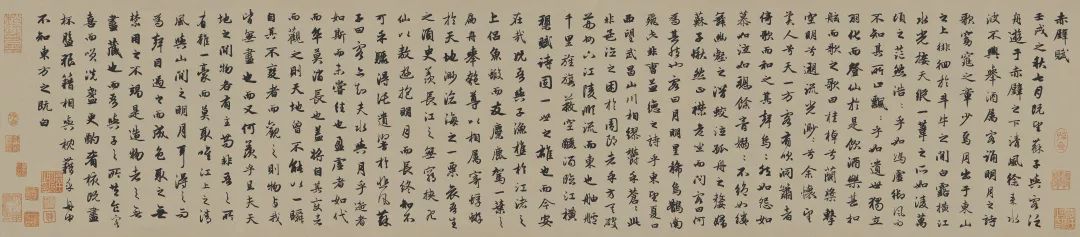 赤壁賦
壬戌之秋七月既望蘇子與客泛
舟遊于赤壁之下清風徐來水
波不興舉酒屬客誦明月之詩
歌窈窕之章少焉月出于東山
之上徘徊於斗牛之間白露橫江
水光接天縱一葦之所如凌萬
頃之茫然浩浩乎如馮虛御風而
不知其所止飄飄乎如遺世獨立
羽化而登仙於是飲酒樂甚扣
舷而歌之歌曰桂棹兮蘭槳擊
空明兮遡流光渺渺兮余懷望
美人兮天一方客有吹洞簫者
倚歌而和之其聲嗚嗚然如怨如
慕如泣如訴餘音嫋嫋不絕如縷
舞幽壑之潛蛟泣孤舟之嫠婦
蘇子愀然正襟危坐而問客曰何
為其然也客曰月明星稀烏鵲南
飛此非曹孟德之詩乎東望夏口
西望武昌山川相繆鬱乎蒼蒼此
非孟德之困於周郎者乎方其破
荊州下江陵順流而東也舳艫
千里旌旗蔽空釃酒臨江橫
槊賦詩固一世之雄也而今安
在哉況吾與子漁樵於江渚之
上侶魚蝦而友麋鹿駕一葉之
扁舟舉匏尊以相屬寄蜉蝣
於天地渺滄海之一粟哀吾生
之須臾羨長江之無窮挾飛
仙以遨遊抱明月而長終知不
可乎驟得託遺響於悲風蘇
子曰客亦知夫水與月乎逝者
如斯而未嘗往也盈虛者如代
而卒莫消長也蓋將自其變者
而觀之則天地曾不能以一瞬
自其不變者而觀之則物與我
皆無盡也而又何羨乎且夫天
地之間物各有主苟非吾之所
有雖一豪而莫取唯江上之清
風與山間之明月耳得之而
為聲目遇之而成色取之無
禁用之不竭是造物者之無
盡藏也而吾與子之所共食客
喜而笑洗盞更酌肴核既盡
杯盤狼籍相與枕藉乎舟中
不知東方之既白